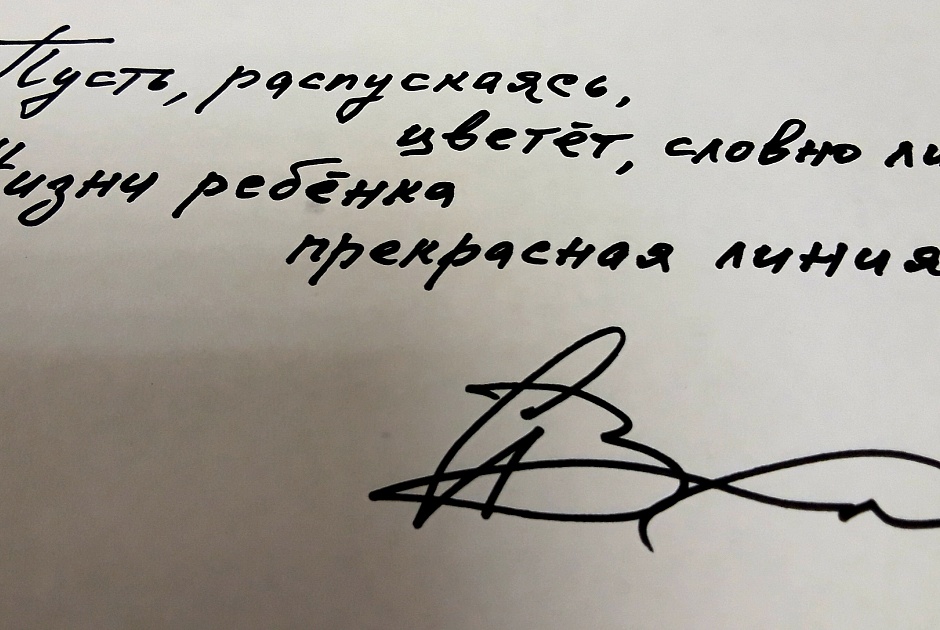 Пусть, распускаясь,
цветёт, словно ли
Жизни ребёнка
прекрасная линия